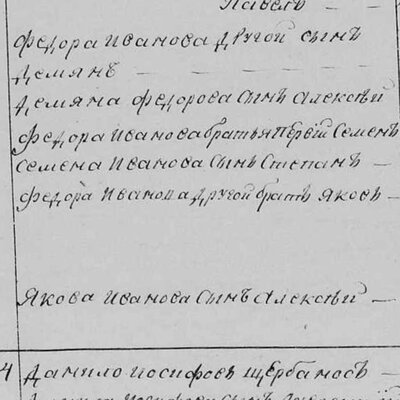 Павелъ
Федора Иванова другой сынъ
Демянъ
Демяна Федорова сынъ Алексѣй
Федора Иванова братья первый Семенъ
Семена Иванова сынъ Степанъ
Федора Иванова другой братъ Яковъ
Якова Иванова сынъ Алексѣй
4 Данило Иосифовъ Щербановъ